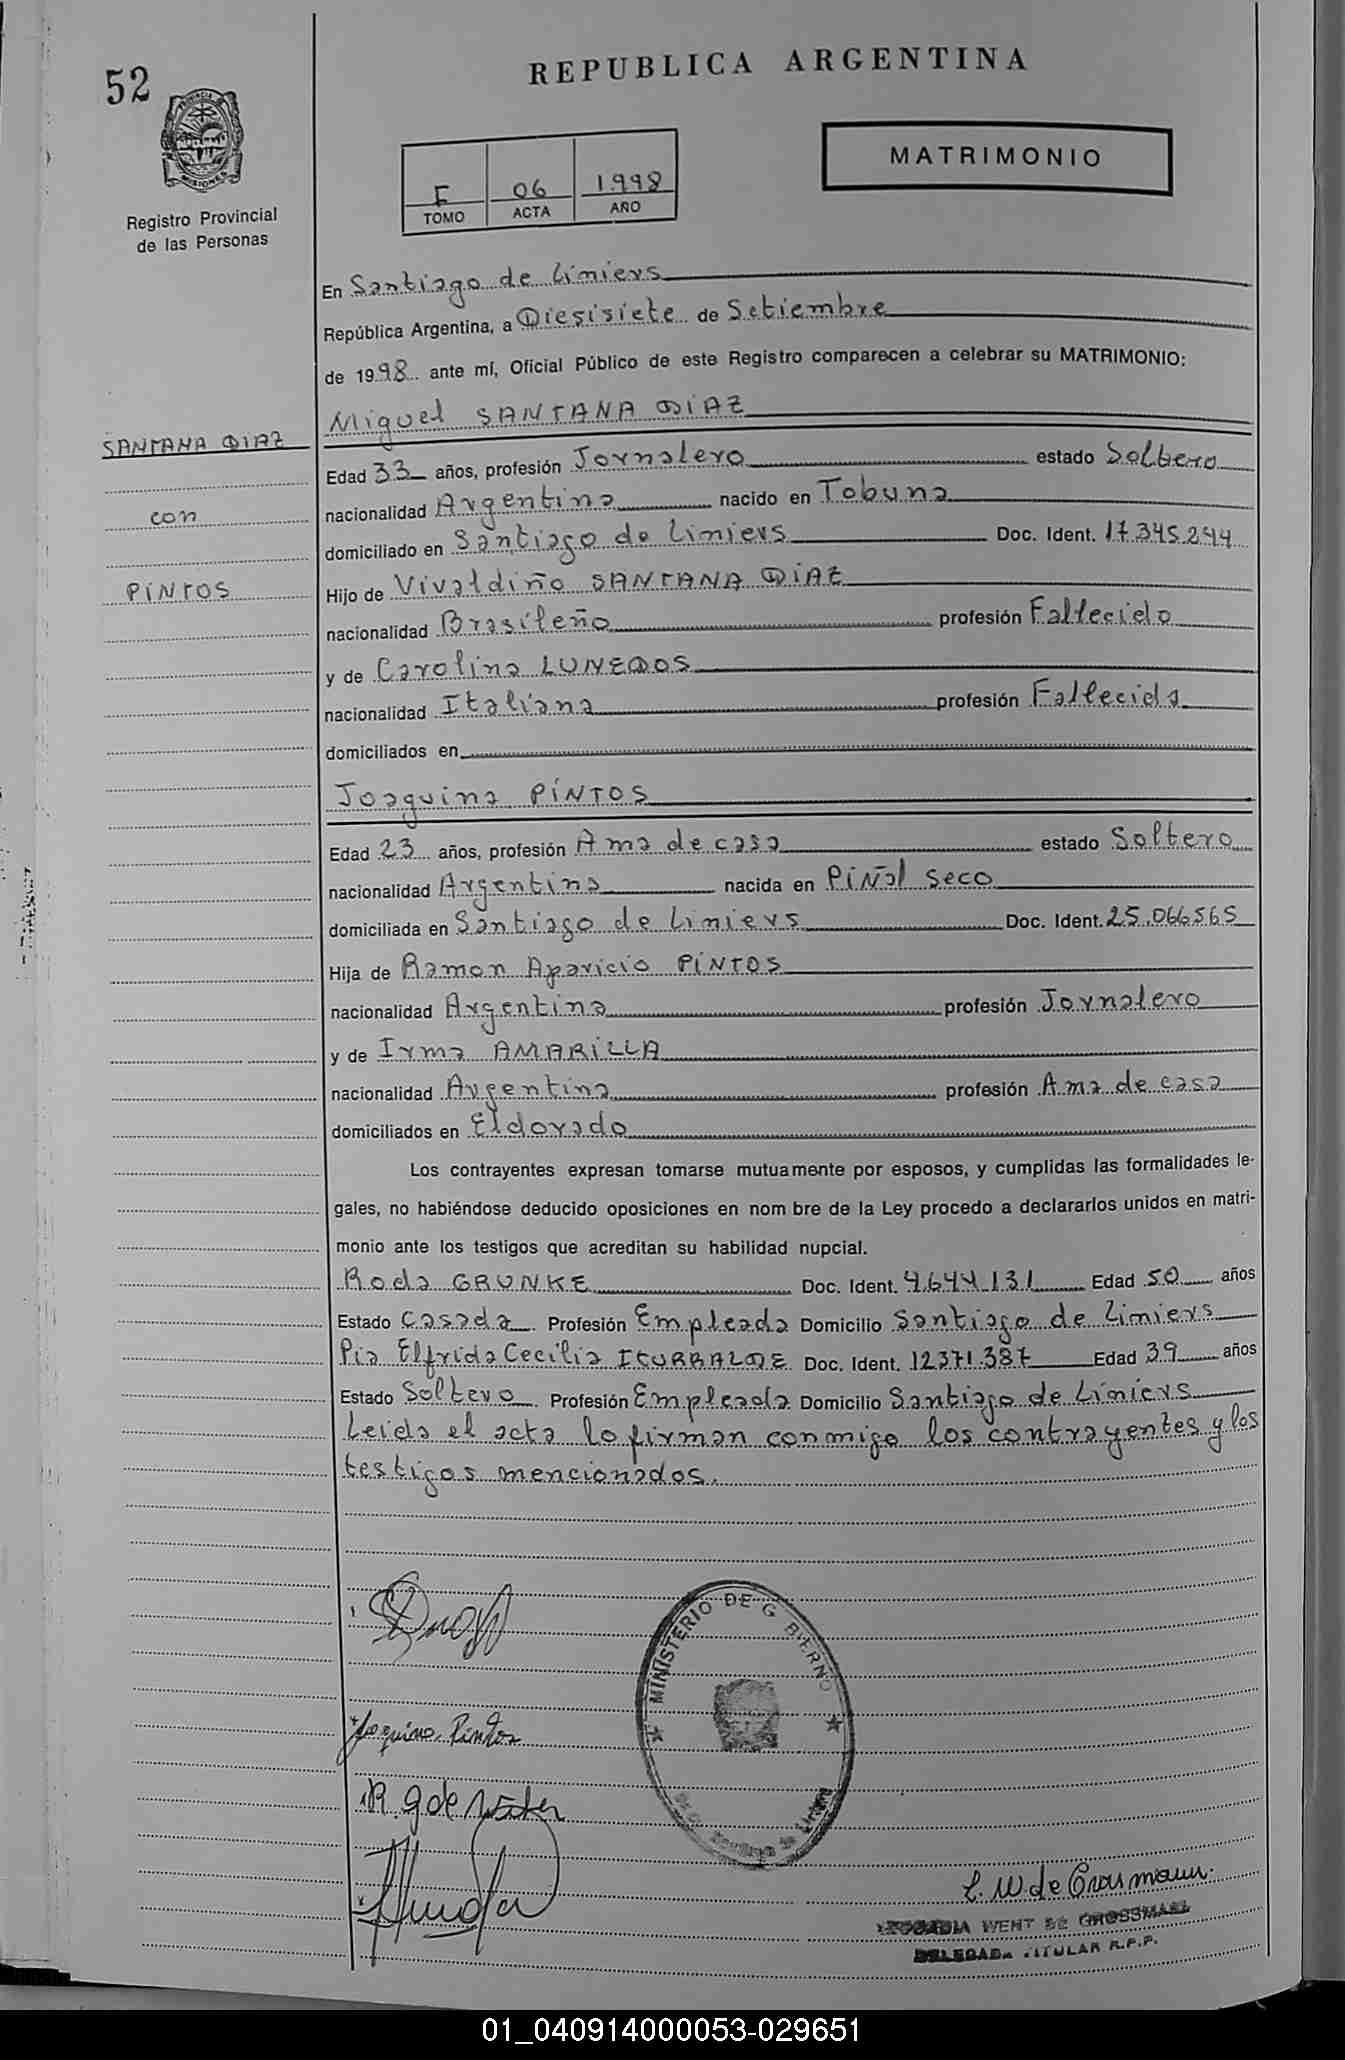 52
REPUBLICA ARGENTINA
PROVINCIA DE
MISIONES
Registro Provincial
de las Personas
F 06 1.998
TOMO ACTA AÑO
MATRIMONIO
En Santiago de Liniers
República Argentina, a Diesisiete de Setiembre
de 1998 ante mí, Oficial Público de este Registro comparecen a celebrar su MATRIMONIO:
Miguel SANTANA DIAZ
SANTANA DIAZ
con
PINTOS
Edad 33 años, profesión Jornalero estado Soltero
nacionalidad Argentina nacido en Tobuna
domiciliado en Santiago de Liniers Doc. Ident. 17.345.244
Hijo de Vivaldiño SANTANA DIAZ
nacionalidad Brasileño profesión Fallecido
y de Carolina LUNEDOS
nacionalidad Italiana profesión Fallecida
domiciliados en
Joaquina PINTOS
Edad 23 años, profesión Ama de casa estado Soltero
nacionalidad Argentina nacida en Piñal Seco
domiciliada en Santiago de Liniers Doc. Ident. 25.066565
Hija de Ramon Aparicio PINTOS
nacionalidad Argentina profesión Jornalero
y de Irma AMARILLA
nacionalidad Argentina profesión Ama de casa
domiciliados en Eldorado
Los contrayentes expresan tomarse mutuamente por esposos, y cumplidas las formalidades le-
gales, no habiéndose deducido oposiciones en nom bre de la Ley procedo a declararlos unidos en matri-
monio ante los testigos que acreditan su habilidad nupcial.
Roda GRUNKE Doc. Ident. 4.644.131 Edad 50 años
Estado Casada Profesión Empleada Domicilio Santiago de Liniers
Pia Elfrida Cecilia ITURRALDE Doc. Ident. 12371.387 Edad 39 años
Estado Soltero Profesión Empleada Domicilio Santiago de Liniers
Leida el acta lo firman conmigo los contrayentes y los
testigos mencionados.
MINISTERIO DE G BIERNO
Santiago de Liniers
Joaquina Pintos
R G de
L. W. de Grossmann
WENT DE GROSSMANN
DELEGADA TITULAR R.P.P.
01_040914000053-029651